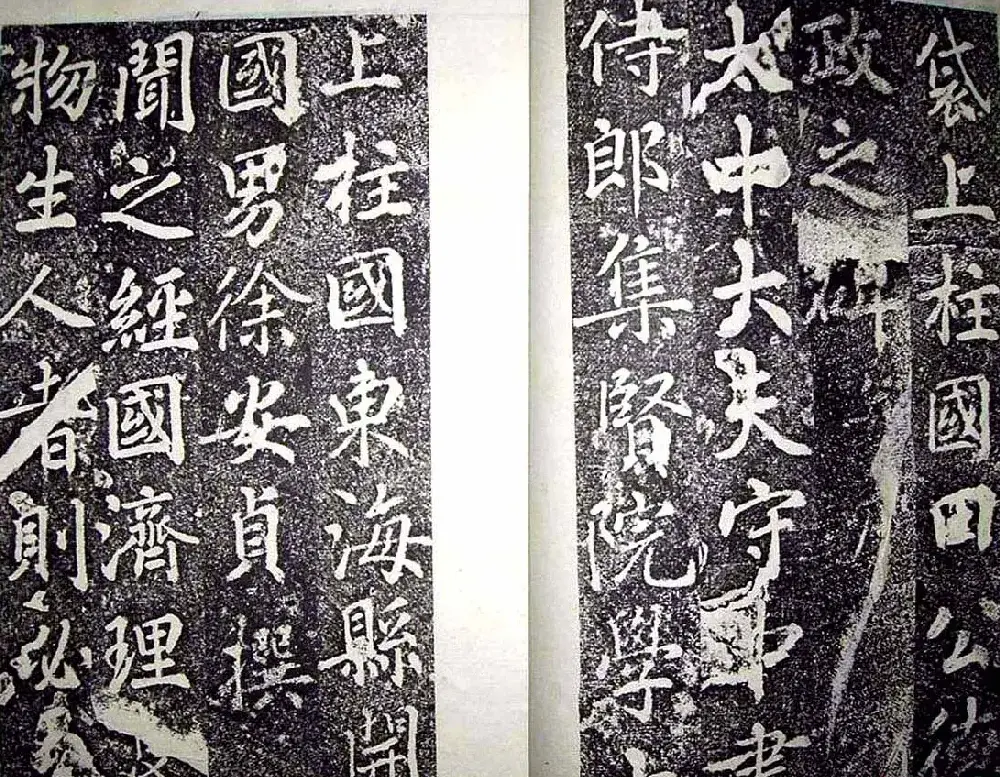 袋上柱國田公德
政之碑
太中大夫守中書
侍郎集賢院學士
上柱國東海縣開
國男徐安貞撰
聞之經國濟理
物生人者則必